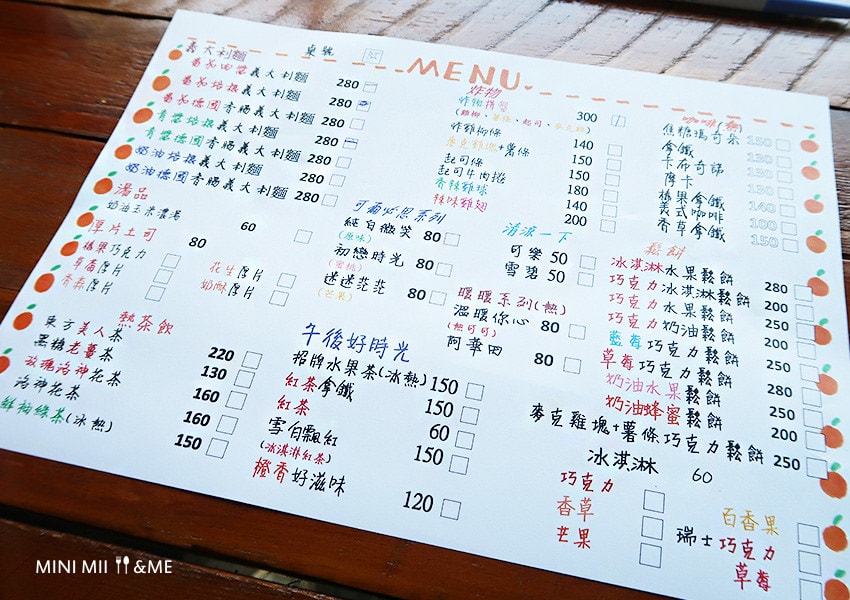 MENU
義大利麵 桌號
番茄肉醬義大利麵 280
番茄培根義大利麵 280
番茄德國香腸義大利麵 280
青醬培根義大利麵 280
青醬德國香腸義大利麵 280
奶油培根義大利麵 280
奶油德國香腸義大利麵 280
湯品
奶油玉米濃湯 60
厚片土司 80
榛果巧克力
草莓厚片
香蒜厚片
花生厚片
奶酥厚片
熱茶飲
東方美人茶 220
黑糖老薑茶 130
玫瑰洛神花茶 160
洛神花茶 160
鮮柚綠茶(冰熱) 150
可爾必思系列
純白微笑 80
(原味)
初戀時光 80
(蜜桃)
迷迷茫茫 80
(芒果)
午後好時光
招牌水果茶(冰熱) 150
紅茶拿鐵 150
紅茶 60
雪伯飄紅 150
(冰淇淋紅茶)
橙香好滋味 120
炸物
炸物拼盤 300
炸雞柳條 140
麥克雞塊+薯條 150
起司條 150
起司牛肉捲 180
香辣雞球 140
辣味雞翅 200
清涼一下
可樂 50
雪碧 50
暖暖系列(熱)
溫暖你心 80
(熱可可)
阿華田 80
咖啡(熱)
焦糖瑪奇朵 150
拿鐵 130
卡布奇諾 130
摩卡 130
榛果拿鐵 140
美式咖啡 100
香草拿鐵 150
鬆餅
冰淇淋水果鬆餅 280
巧克力冰淇淋鬆餅 200
巧克力水果鬆餅 250
巧克力奶油鬆餅 200
藍莓巧克力鬆餅 250
草莓巧克力鬆餅 280
奶油水果鬆餅 250
奶油蜂蜜鬆餅 200
麥克雞塊+薯條巧克力鬆餅 250
冰淇淋 60
巧克力
香草
芒果
百香果
瑞士巧克力
草莓
MINI MII &ME